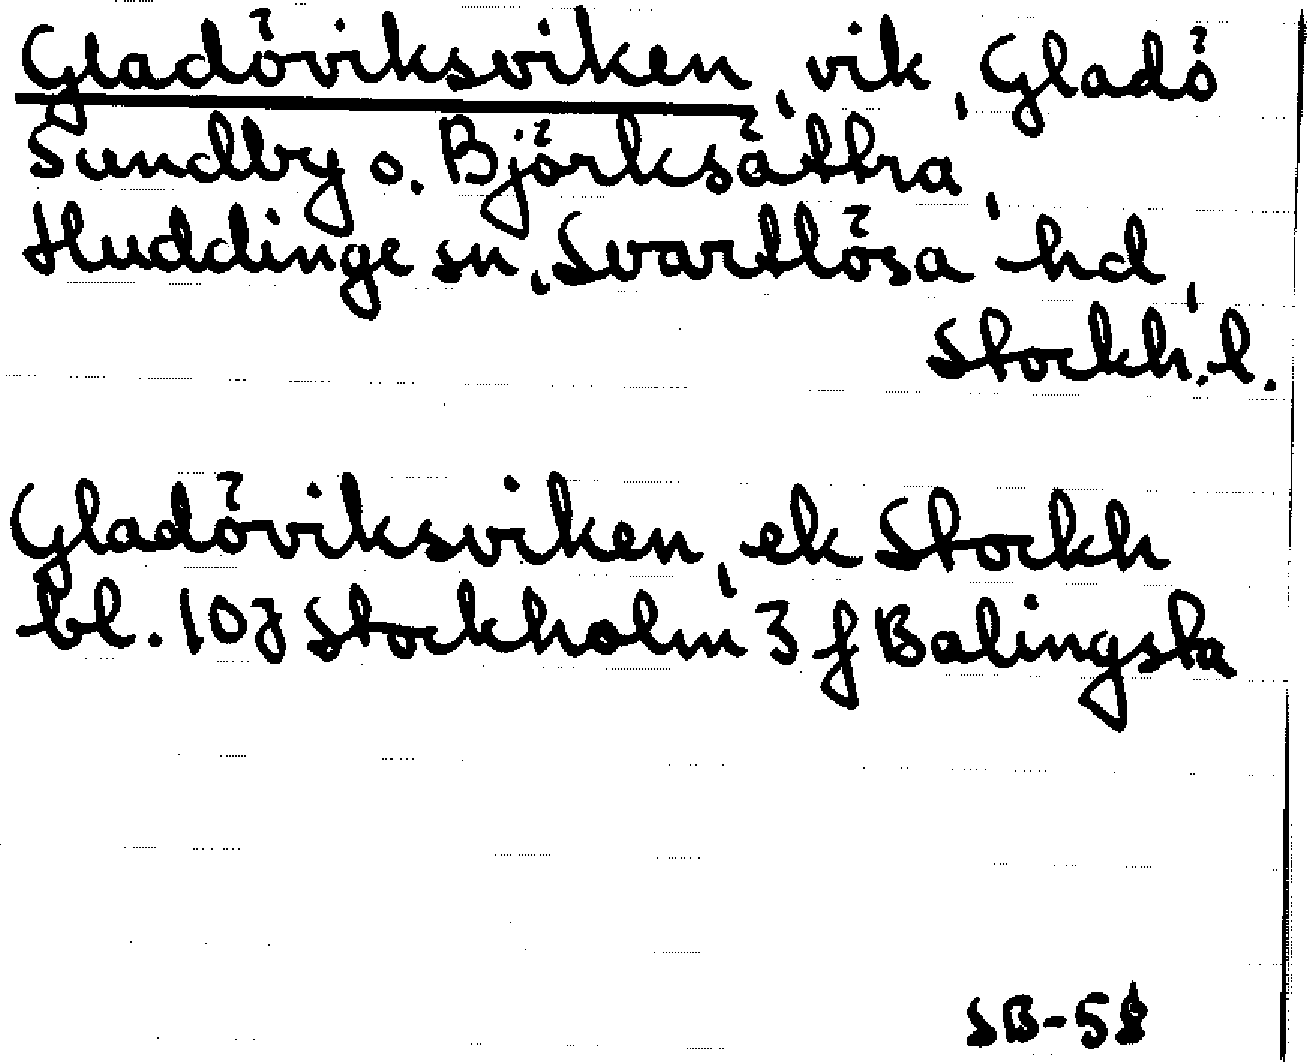 Gladöviksviken, vik, Gladö
Sundby o. Björksättra,
Huddinge sn, Svartlösa hd,
Stockh. l.
Gladöviksviken, ek Stockh
bl. 10J Stockholm 3 f Balingsta
SB-58